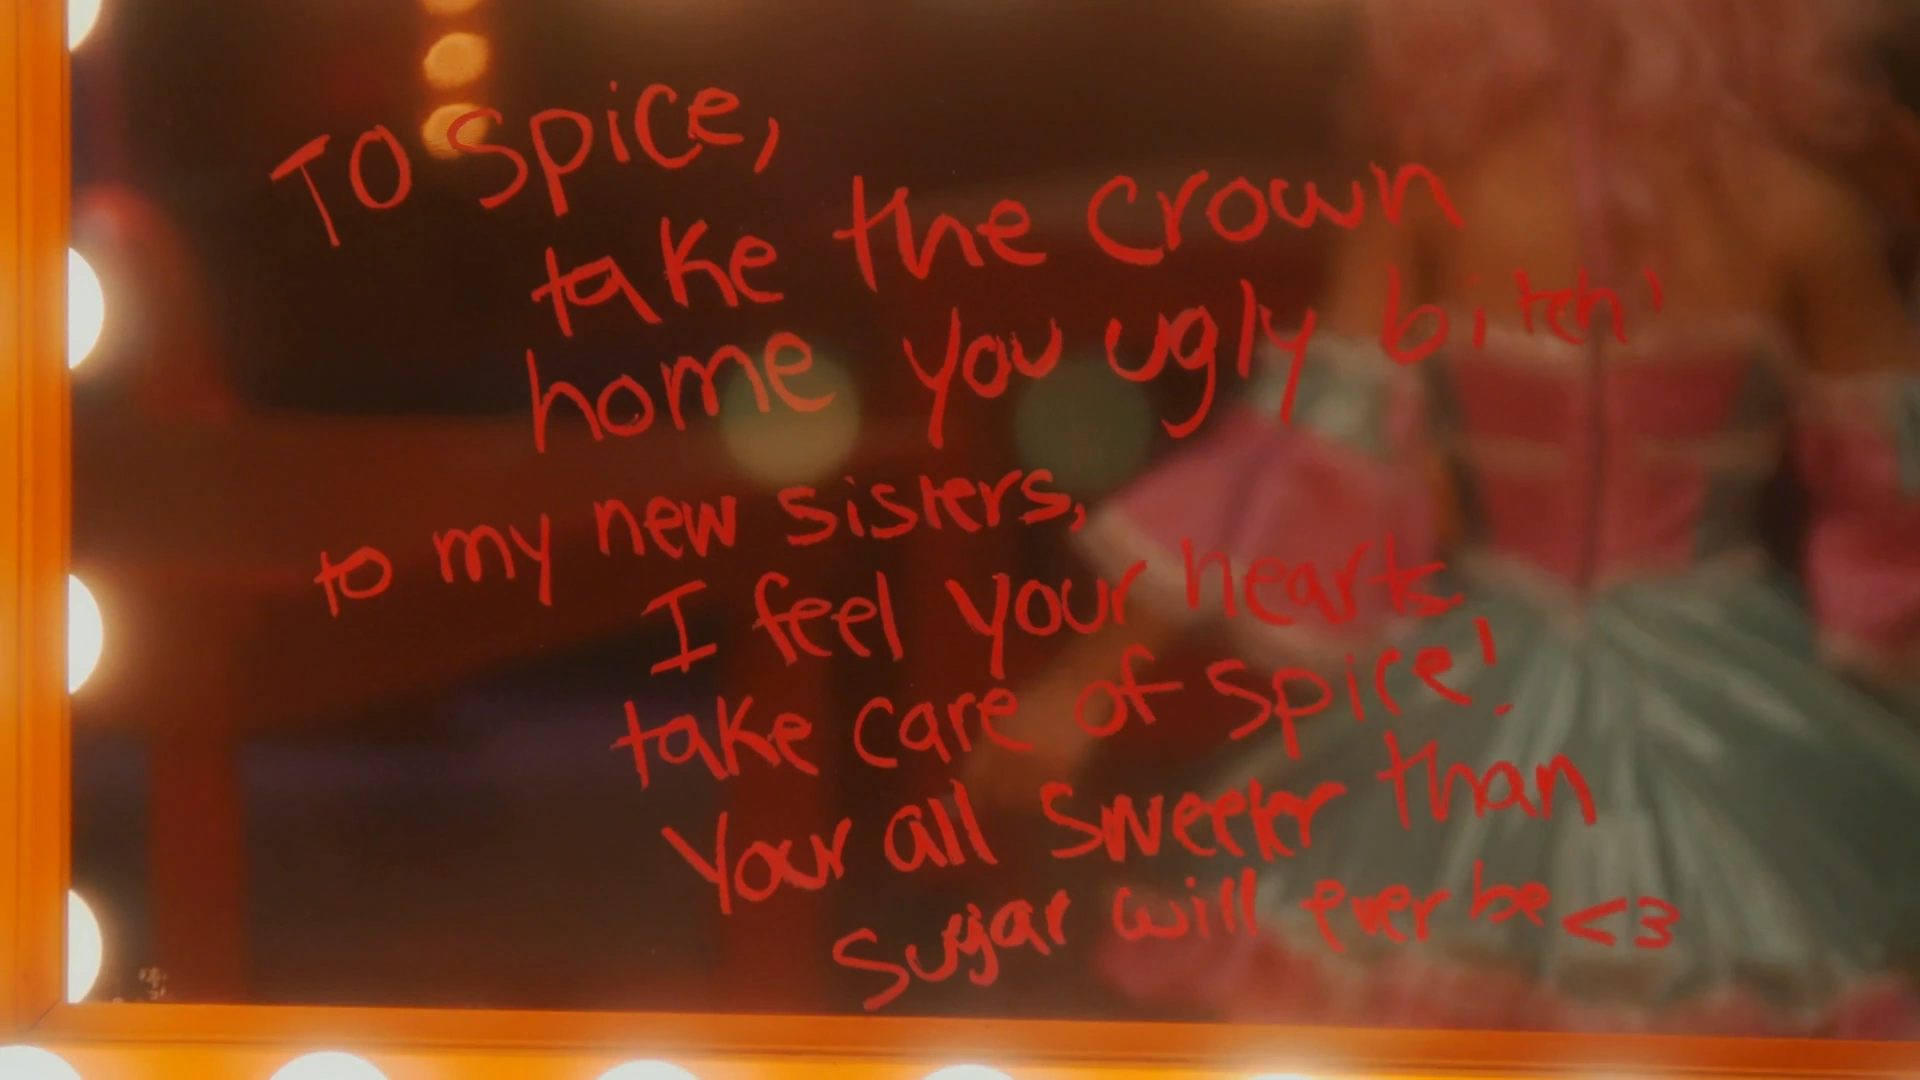 TO Spice,
take the crown
home you ugly bitch!
to my new sisters,
I feel your hearts
take care of spice!
Your all sweeter than
Sugar will ever be <3